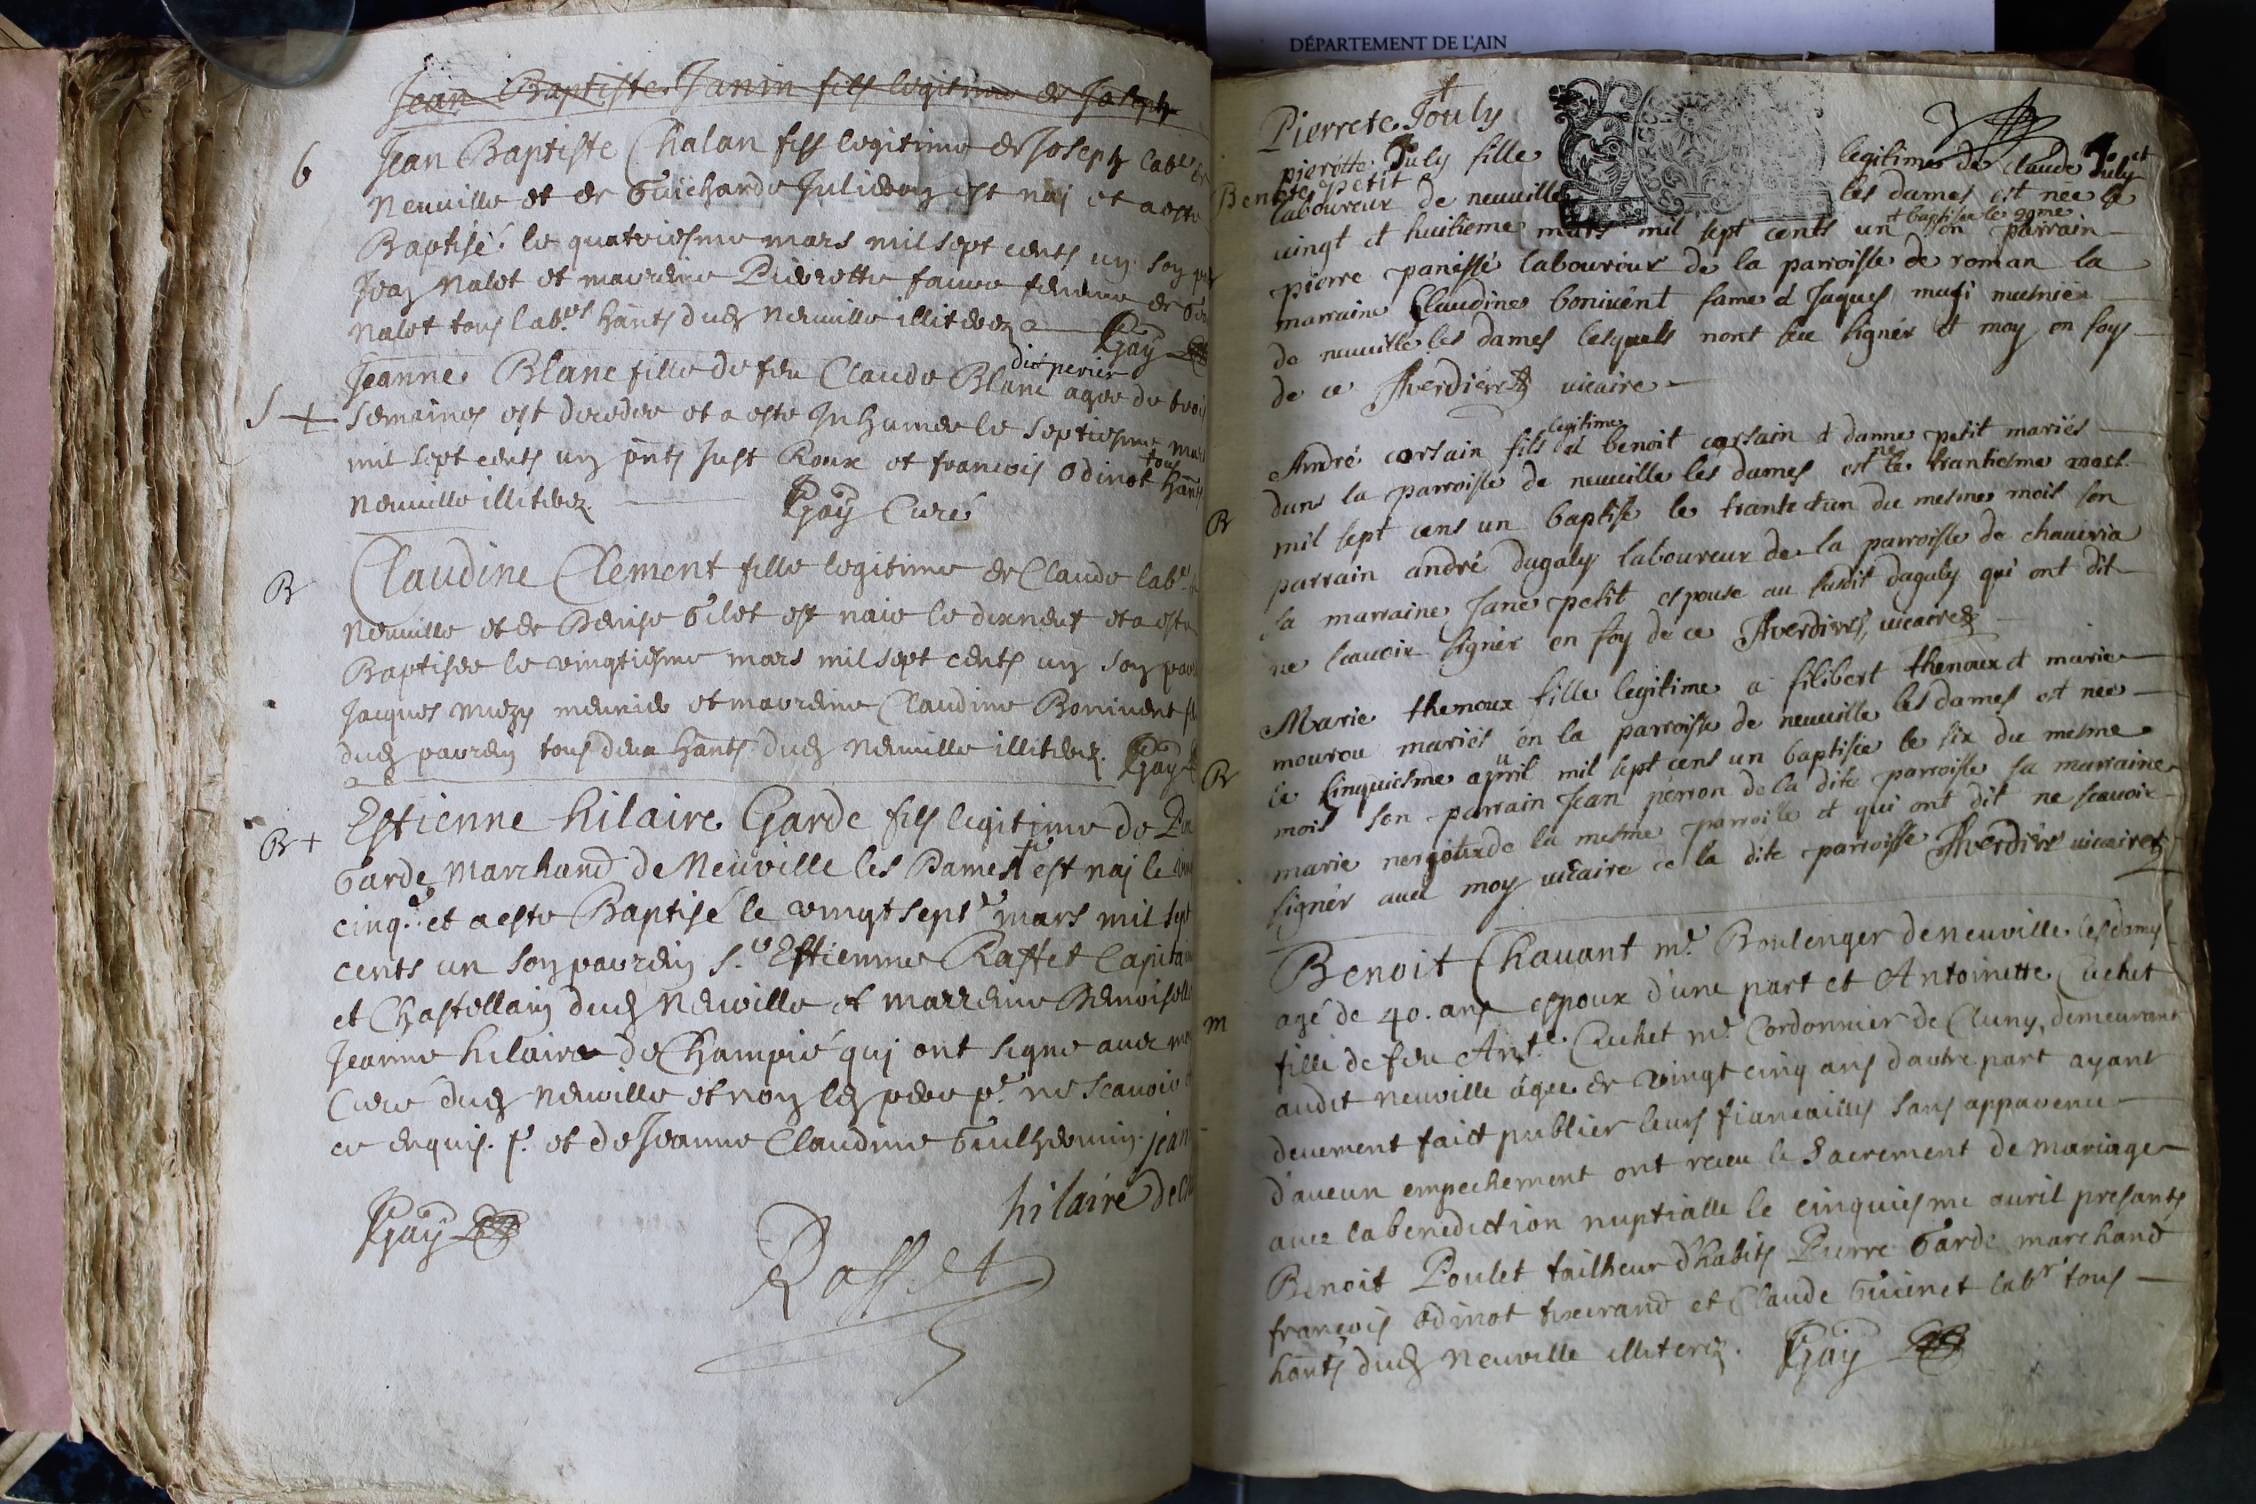 DÉPARTEMENT DE L'AIN
Jean Baptiste Janin fils legitime de Joseph
6
Jean Baptiste Chalan fils legitime de Joseph lab.r de
Neuville et de Guicharde Julieron est naj et a esté
Baptisé le quatriesme mars mil sept cents un son
Jean Nalet et marreine Pierrette faure femme de
Nalet tous lab.rs hants dud Neuville illiterez Gay
Jeanne Blanc fille de feu Claude Blanc dit perier agee de trois
S +
semaines est decedee et a esté Inhumee le septiesme mars
mil sept cents un pnts Just Roux et francois Odinot tous hants
Neuville illiterez. Gay Curé
B
Claudine Clement fille legitime de Claude lab.r
Neuville et de Denise Gilet est naie le dixneuf et a esté
Baptisee le vingtiesme mars mil sept cents un son
Jacques Muzy meunier et marreine Claudine Bonivent
dud parrein tous deux hants dud Neuville illiterez. Gay
B +
Estienne hilaire Garde fils legitime de
Garde Marchand de Neuville les Dames est naj le
cinq.e et a esté Baptisé le vingt sept.e mars mil sept
cents un son parrein s.r Estienne Raffet Capitaine
et Chastellain dud Neuville et marreine Demoiselle
Jeanne hilaire de Champié quj ont signe avec moy
Curé dud Neuville et non led pere p.r ne scavoir
ce enquis. et de Jeanne Claudine Guilhermin. jean
hilaire de
Gay
Raffet
Pierrete Jouly
pierrette July fille legitime de claude July et
Benoite petit
laboureur de neuville les dames est née le
vingt et huitieme mars mil sept cents un et baptisée le 29me son parrain
pierre panissé laboureur de la parroisse de roman la
marraine Claudine bonivent fame d Jaques musi musnier
de neuville les dames lesquels nont sceu signer et moy en foys
de ce Averdière vicaire
André corsain fils legitime d benoit corsain d danne petit mariés
B
dans la parroisse de neuville les dames est né le trantiesme mars
mil sept cens un baptisé le trante et un du mesme mois son
parrain andré dugaby laboureur de la parroisse de chaveria
sa marraine Jane petit espouse au susdit dagaby qui ont dit
ne scavoir signer en foy de ce Averdiere, vicaire
Marie thenoux fille legitime a filibert thenoux d marie
mourou mariés en la parroisse de neuville les dames est née
B
le cinquiesme apvril mil sept cens un baptisée le six du mesme
mois son parrain Jean perron de la dite parroisse sa marraine
marie de la mesme parroisse et qui ont dit ne scavoir
signer avec moy vicaire de la dite parroisse Averdière vicaire
Benoit Chavant m.e Boulenger de neuville les dames
agé de 40. ans espoux d'une part et Antoinette Cuchet
m
fille de feu Ant.e Cuchet m.e Cordonnier de Cluny, demeurant
audit neuville agée de vingt cinq ans d'autre part ayant
deuement faict publier leurs fiancailles sans apparence
d'aucun empechement ont receu le Sacrement de Mariage
avec la benediction nuptialle le cinquiesme avril presants
Benoit Poulet tailheur d'habits Pierre Garde marchand
françois Odinot tixerand et Claude Guinet lab.r tous
hants dud Neuville illiterez. Gay